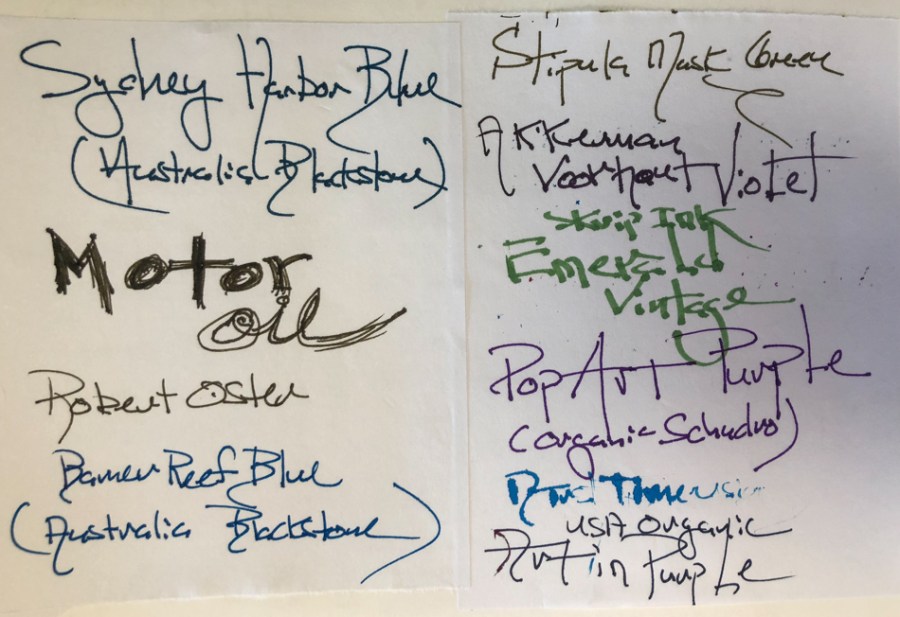 Sydney Harbor Blue
(Australia Blackstone)
Motor
oil
Robert Oster
Barrier Reef Blue
(Australia Blackstone)
Stipula Musk Green
Akkerman
Voorhout Violet
Ink
Emerald
Vintage
Pop Art Purple
(Organic
USA Organic
Art in Purple